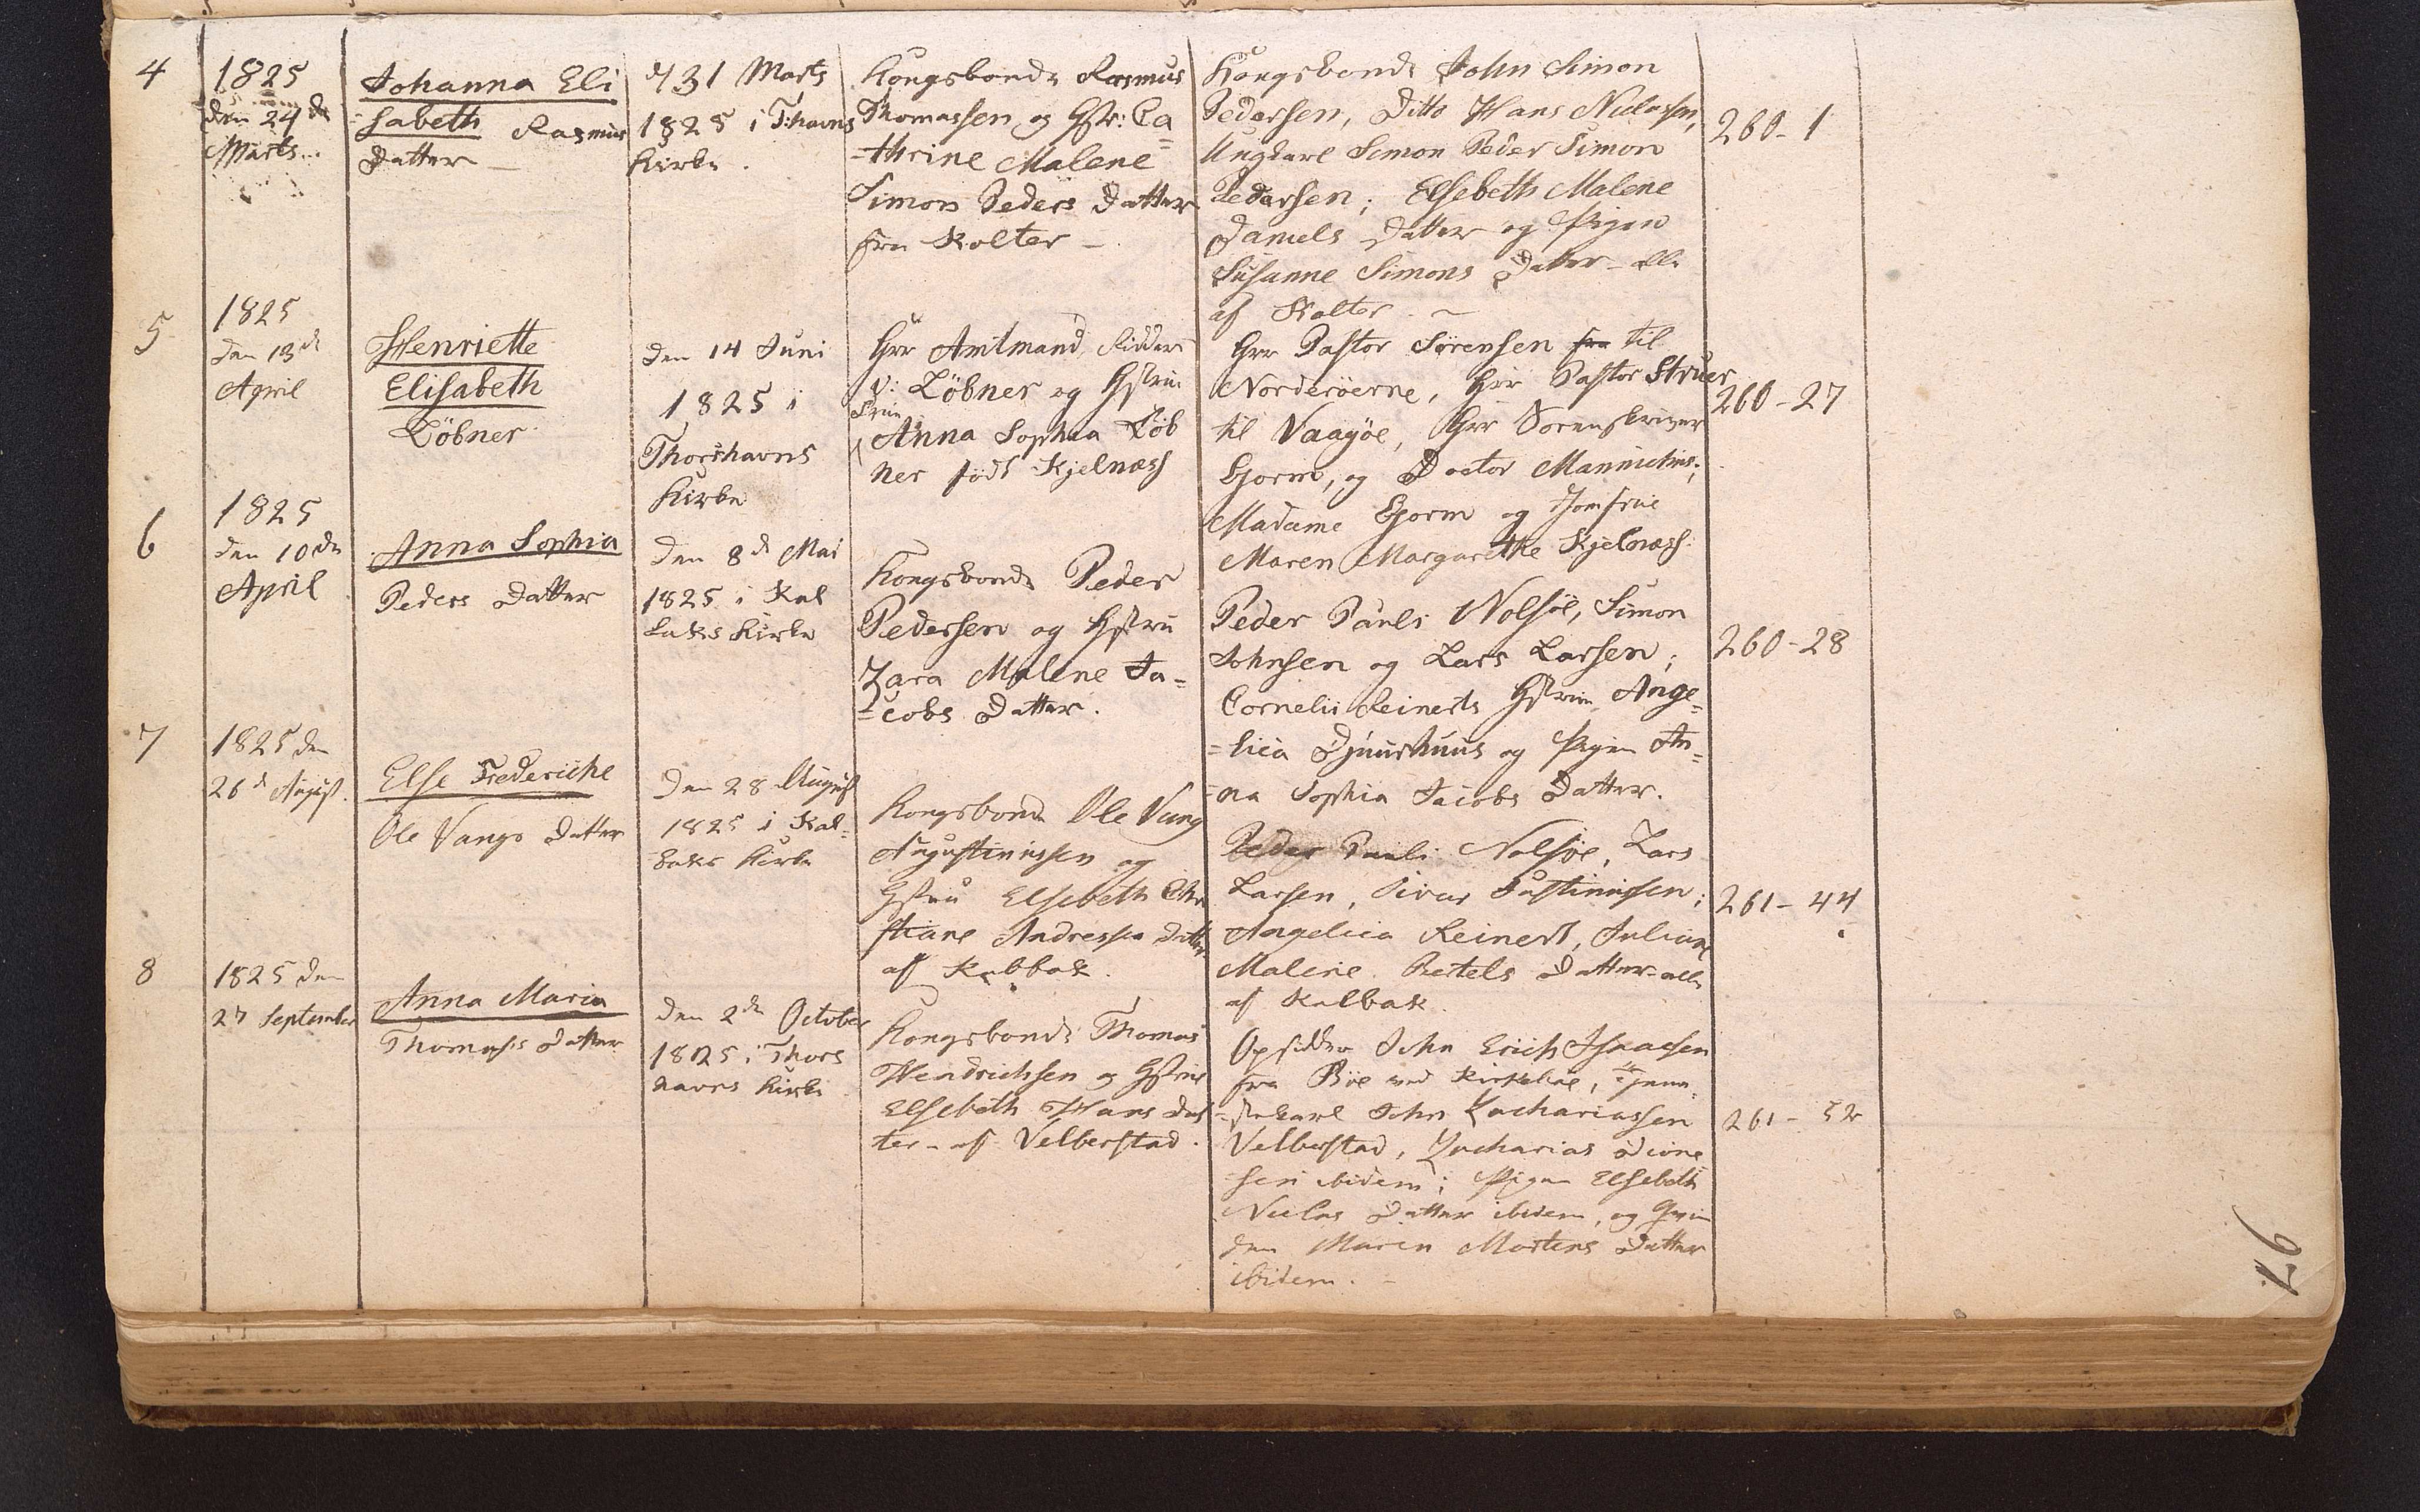 4
1825
den 24de
Marts
Johanna Eli
-sabeth Rasmus
Datter
d 31 Marts
1825 i Thavns
Kirke.
Kongsbonde Rasmus
Thomassen og Hstr: Ca=
=thrine Malene
Simon Peders Datter
fra Kolter
Kongsbonde John Simon
Pedersen, Ditto Hans Niclassen,
Ungkarl Simon Peder Simon
Pedersen; Elsebeth Malene
Daniels Datter og Pigen
Susanne Simons Datter - alle
af Kolter
260-1
5
1825
den 13d
April
Henriette
Elisabeth
Löbner
den 14 Juni
1825 i
Thorshavns
Kirke
Hrr Amtmand, Ridder
v: Löbner og Hstrue
Frue
Anna Sophia Löb
ner född Kjelnæss
Hrr Pastor Sørensen fra til
Norderöerne, Hrr Pastor Struer
til Vaagöe, Hrr Sorenskriver
Gjorm, og Doctor
Madame Gjorm og Jomfrue
Maren Margarethe Kjelnæss
260-27
6
1825
den 10de
April
Anna Sophia
Peders Datter
den 8d Mai
1825 i Kal
baks Kirke
Kongsbonde Peder
Pedersen og Hstru
Zara Malene Ja=
=cobs Datter.
Peder Pauli Nolsöe, Simon
Johnsen og Lars Larsen;
Cornelii Reinerts Hstrue Ange=
=lica Djuurhuus og Pigen An=
=na Sophia Jacobs Datter.
260-28
7
1825 den
26d August.
Else Frederiche
Ole Vangs Datter
den 28 August
1825 i Kal=
baks Kirke
Kongsbonde Ole Vang
Augustinussen og
Hstru Elsebeth Chri
stiane Andreses Datter
af Kalbak.
Peder Pauli Nolsöe, Lars
Larsen, Sivar Justinussen;
Angelica Reinert, Juliane
Malene Bertels Datter - alle
af Kalbak.
261-44
8
1825 den
27 September
Anna Maria
Thomases Datter
den 2de October
1825 i Thors
havns Kirke
Kongsbonde Thomas
Hendrichsen og Hstrue
Elsebeth Hans Dat
ter - af Velberstad.
Opsidder John Erich Isaacsen
fra Böe ved Kirkeböe, Tjene
-stekarl John Zachariassen
Velberstad, Zacharias
sen ibidem; Pigen Elsebeth
Niclas Datter ibidem, og
den Maren Mortens Datter
ibidem.
261-52